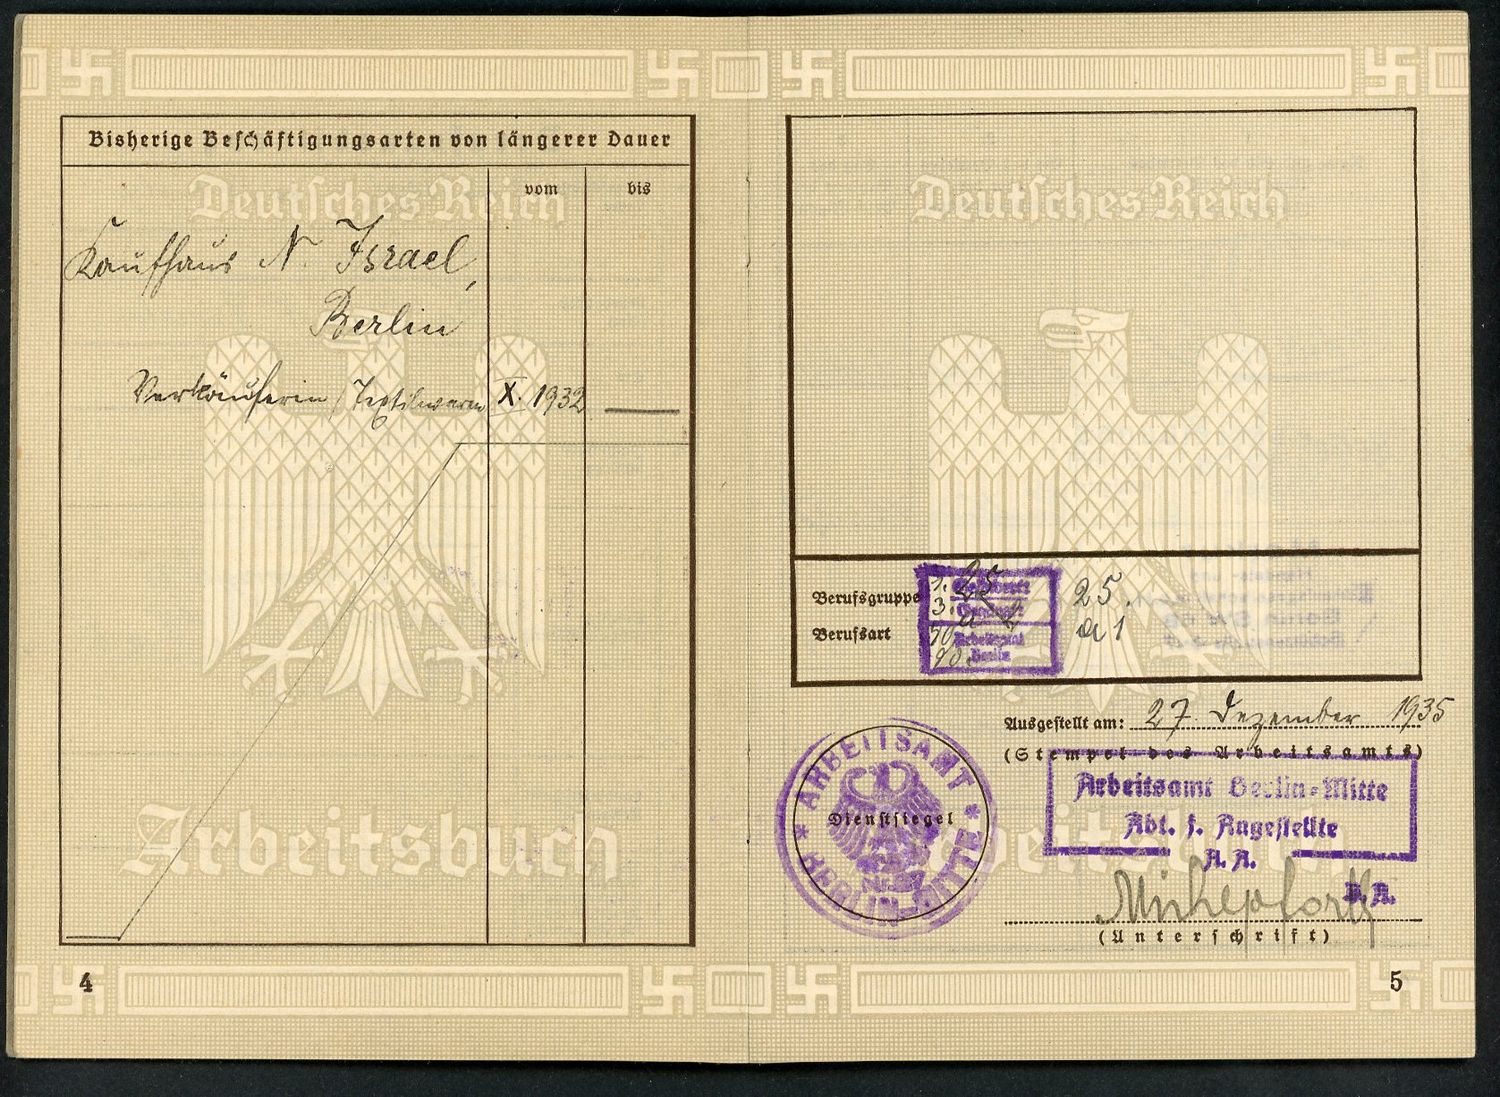 Bisherige Beschäftigungsarten von längerer Dauer
vom bis
Deutsches Reich
Kaufhaus N. Israel,
Berlin
Verkäuferin / Textilwaren X. 1932
Arbeitsbuch
4
Deutsches Reich
Berufsgruppe 1. 25 25.
3.
Berufsart a1
Arbeitsamt
Berlin
Ausgestellt am: 27. Dezember 1935
(Stempel des Arbeitsamts)
ARBEITSAMT
Dienstsiegel
BERLIN-MITTE
Arbeitsamt Berlin-Mitte
Abt. f. Angestellte
A. A.
(Unterschrift)
5